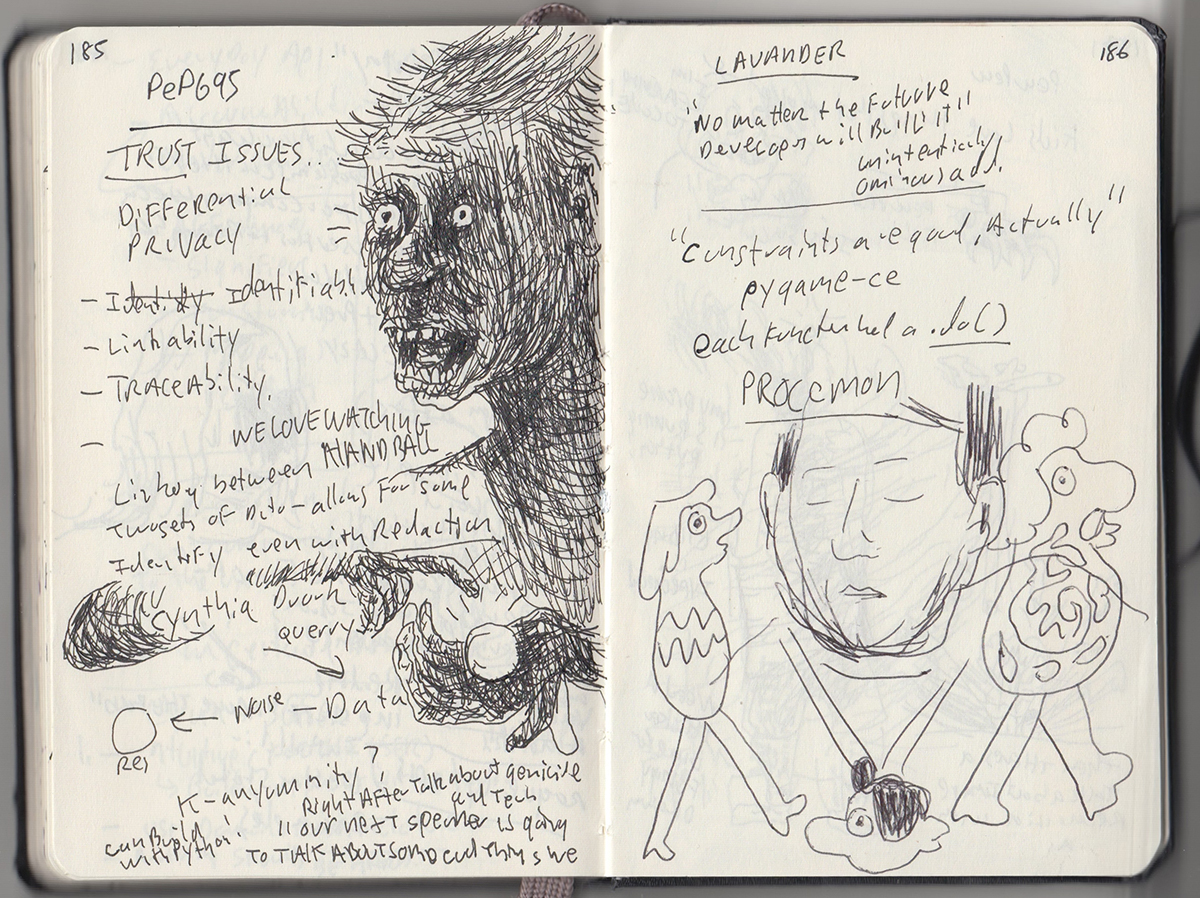 185
PeP695
TRUST ISSUES..
DiFFerential
PRIVACY
- Identify Identifiable
- Linkability
- TRACEAbility.
-
WE LOVE WATCHING
HANDBALL
between
Two sets of Data - allows For some
Identify even with Redaction
Cynthia Dwork
querry
Noise - Data
K - anyumnity ?
Right After Talk about genicide
and Tech
can Build
with Python
"our next speaker is going
TO TALK ABOUT SOMD cool things we
186
LAVANDER
"No matter the Future
Developers will Build it"
unintentionly
ominous ads!
"Constraints are good, Actually"
pygame-ce
each had a .do()
PROCCMON